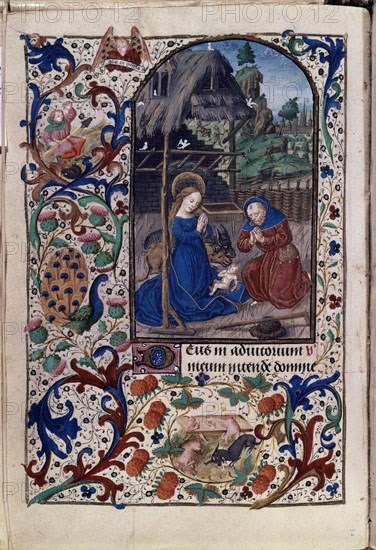 DEus in adiutorium
meum intende domine